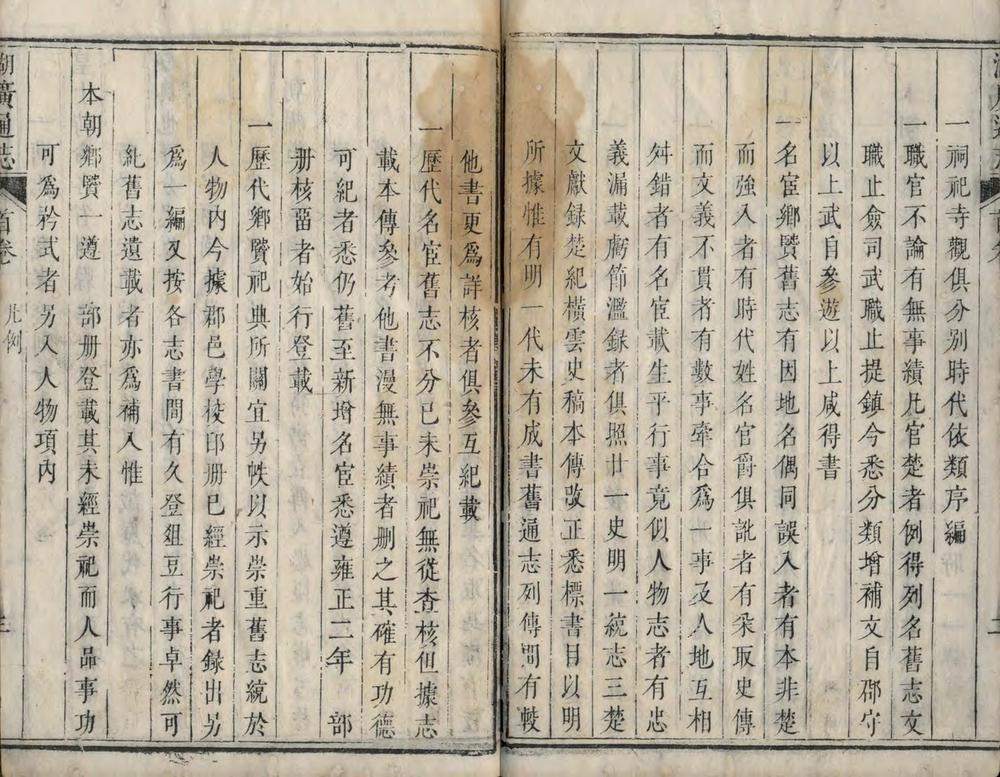 一祠祀寺觀俱分別時代依類序編
一職官不論有無事績凡官楚者例得列名舊志文
職止僉司武職止提鎮今悉分類增補文自郡守
以上武自參遊以上咸得書
一名宦鄉賢舊志有因地名偶同誤入者有本非楚
而強入者有時代姓名官爵俱訛者有采取史傳
而文義不貫者有數事牽合爲一事及人地互相
舛錯者有名宦載生平行事竟似人物志者有忠
義漏載虧節濫錄者俱照廿一史明一統志三楚
文獻録楚紀橫雲史稿本傳改正悉標書目以明
所據惟有明一代未有成書舊通志列傳間有較
他書更爲詳核者俱參互紀載
一歷代名宦舊志不分已未崇祀無從查核但據志
載本傳參考他書漫無事績者刪之其確有功德
可紀者悉仍舊至新增名宦悉遵雍正二年　部
册核留者始行登載
一歷代鄉賢祀典所關宜另帙以示崇重舊志統於
人物內今據郡邑學校印册已經崇祀者録出另
爲一編又按各志書間有久登俎豆行事卓然可
紀舊志遺載者亦爲補入惟
本朝鄉賢一遵　部册登載其未經崇祀而人品事功
可爲矜式者另入人物項內
湖廣通志
首卷
凡例
三